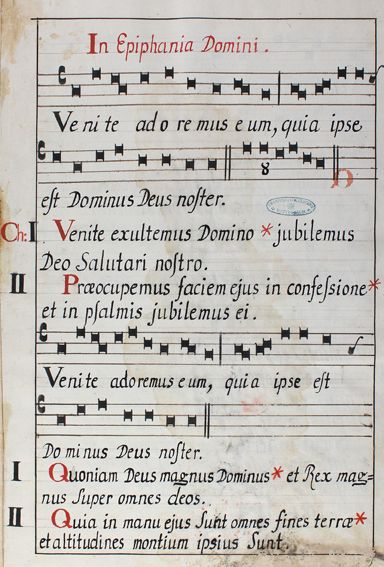 In Epiphania Domini.
Venite adoremus eum, quia ipse
8
est Dominus Deus noster.
Ch: I Venite exultemus Domino * jubilemus
Deo Salutari nostro.
II Præocupemus faciem ejus in confessione *
et in psalmis jubilemus ei.
Venite adoremus eum, quia ipse est
Dominus Deus noster.
I Quoniam Deus magnus Dominus * et Rex mag=
nus super omnes deos.
II Quia in manu ejus Sunt omnes fines terræ *
et altitudines montium ipsius Sunt.